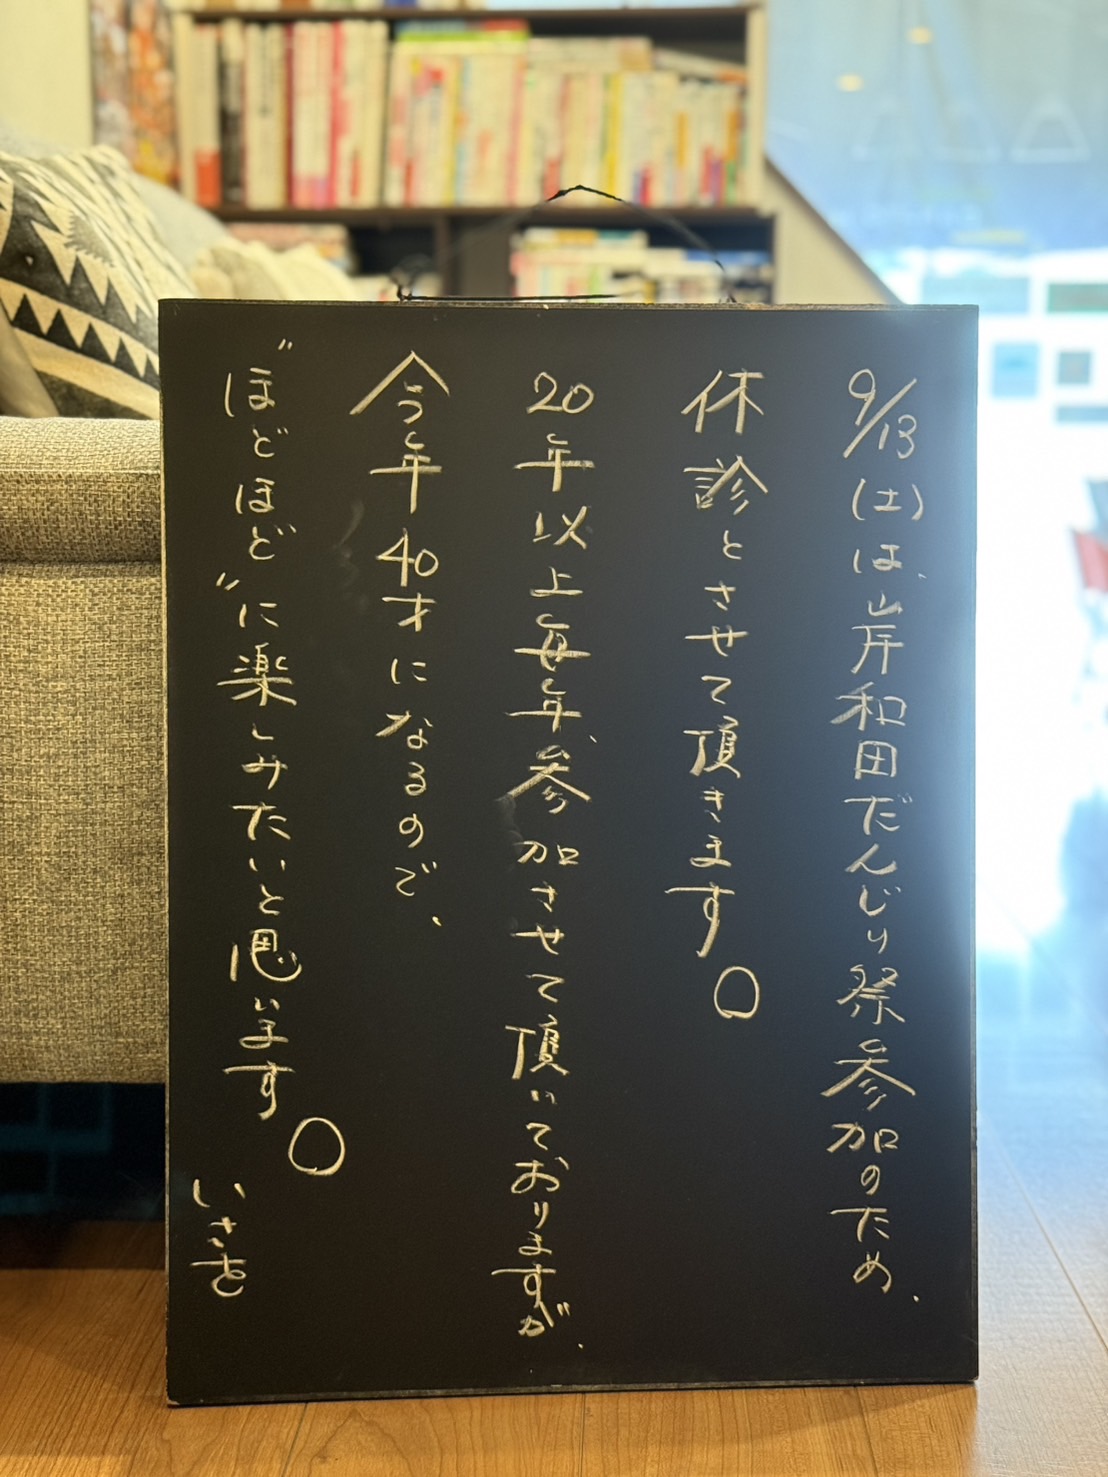 9/13(土)は、岸和田だんじり祭参加のため、
休診とさせて頂きます。
20年以上毎年、参加させて頂いておりますが、
今年40才になるので、
"ほどほど"に楽しみたいと思います。
いさを